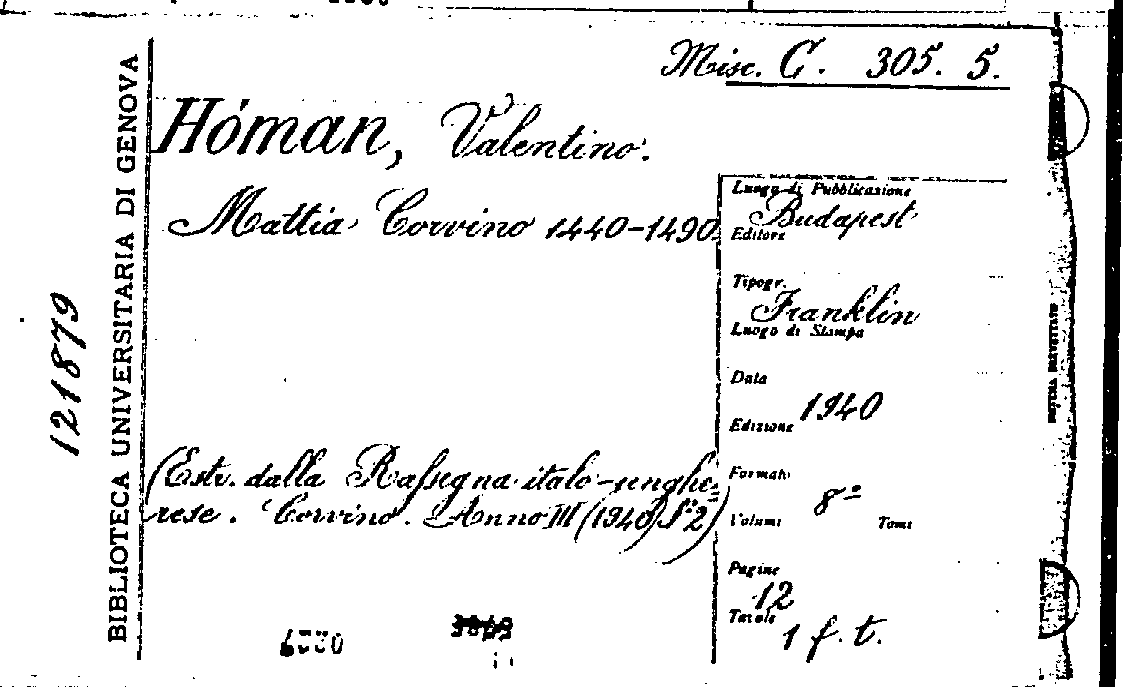 Misc. C. 305. 5.
Hóman, Valentino.
Mattia Corvino 1440-1490.
(Estr. dalla Rassegna italo-unghe=
rese. Corvino. Anno III (1940) N.° 2)
BIBLIOTECA UNIVERSITARIA DI GENOVA
121879
Luogo di Pubblicazione
Budapest
Editore
Tipogr.
Franklin
Luogo di Stampa
Data
1940
Edizione
Formato
8°
Volumi Tomi
Pagine
12
Tavole
1 f. t.